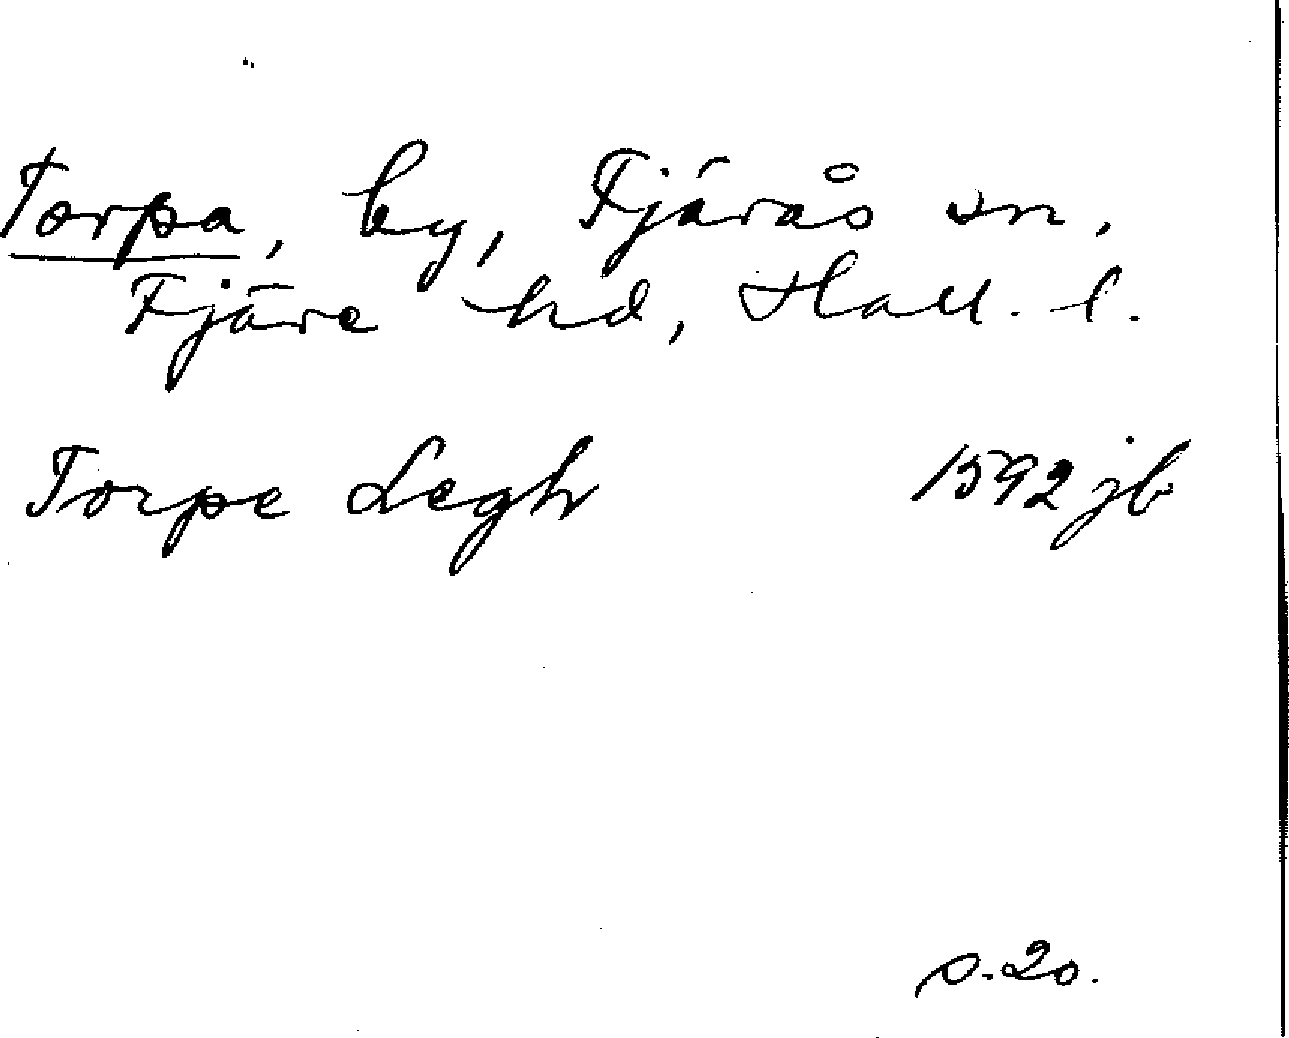 Torpa, by, Fjärås sn,
Fjäre hd, Hall. l.
Torpe Legh 1592 jb
s. 20.